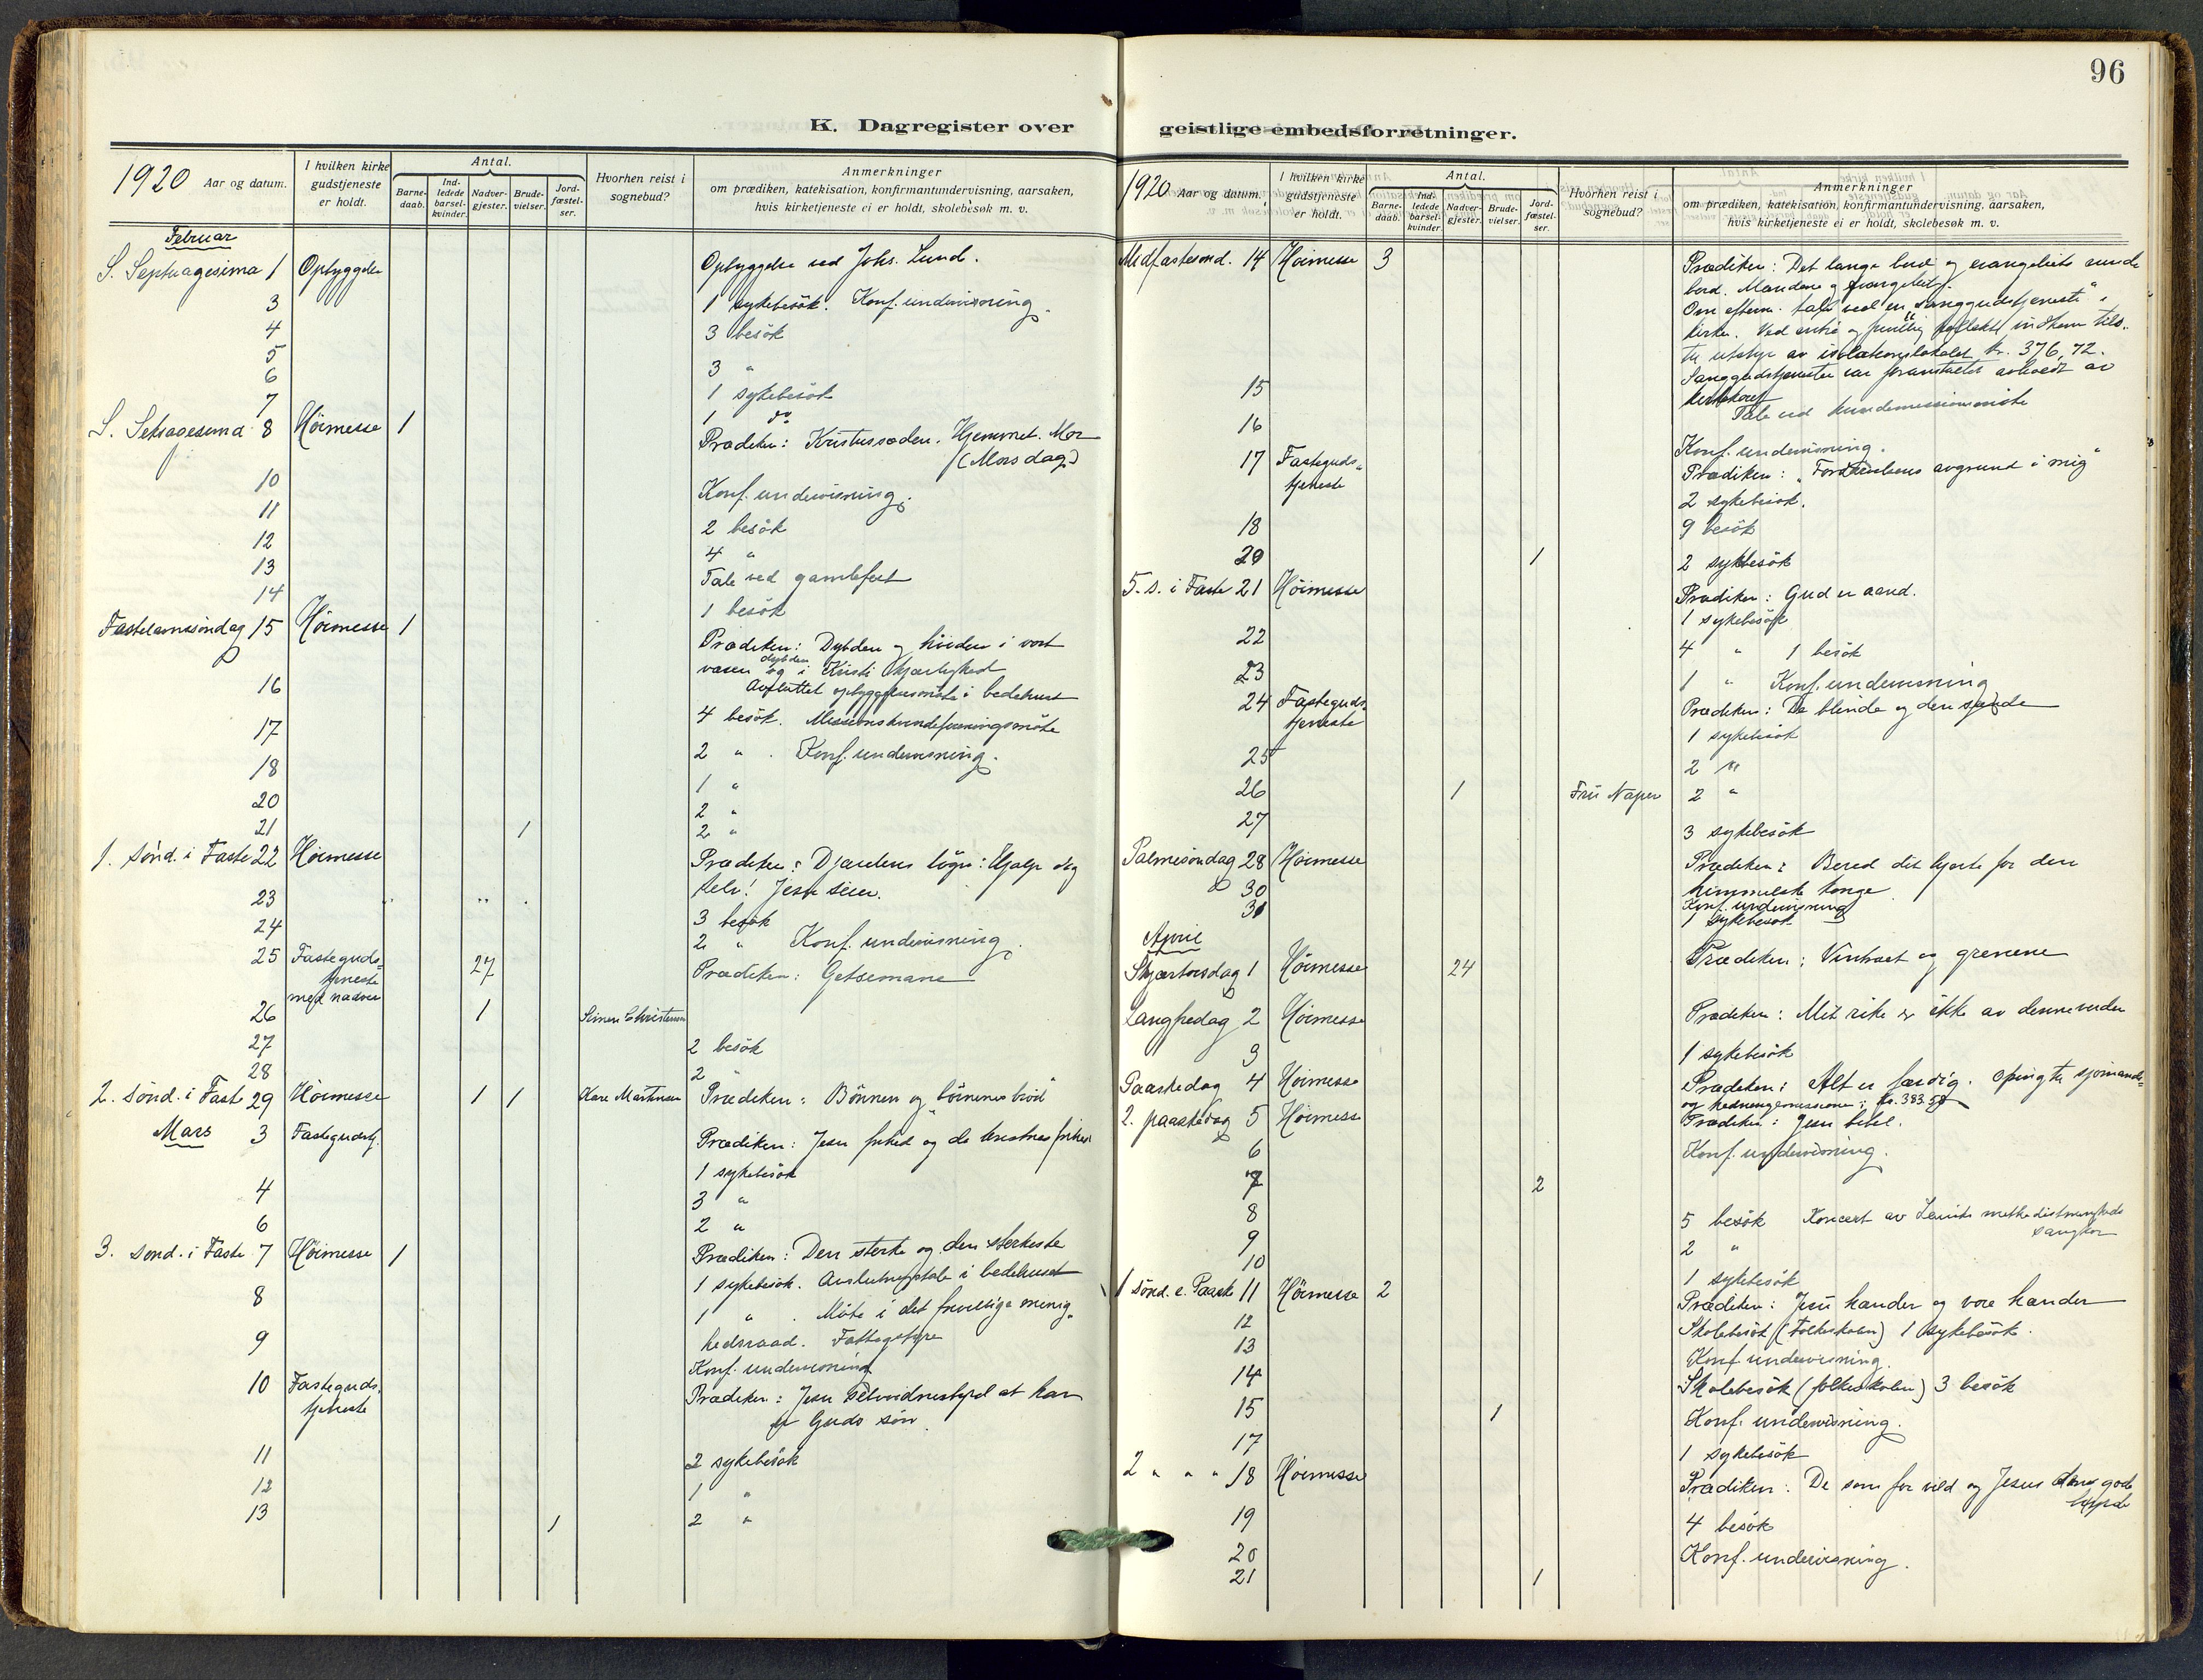 96
K. Dagregister over
geistlige embedsforretninger.
1920 Aar og datum.
I hvilken kirke gudstjeneste er holdt.
Antal.
Barnedaab.
Indledede barselkvinder.
Nadvergjester.
Brudevielser.
Jordfæstelser.
Hvorhen reist i sognebud?
Anmerkninger
om prædiken, katekisation, konfirmantundervisning, aarsaken,
hvis kirketjeneste ei er holdt, skolebesøk m. v.
Februar
S. Septuagesima 1 Opbyggelse Opbyggelse ved Johs. Lund.
3 1 sykebesök. Konf. undervisning.
4 3 besök
5 3 "
6 1 sykebesök
7 1 do
S. Seksagesima 8 Höimesse 1 Prædiken: Kristussæden. Hjemmet. Mor
(Morsdag)
10 Konf. undervisning.
11 2 besök
12 4 "
13 Tale ved gamlefest
14 1 besök
Fastelavnssöndag 15 Höimesse 1 Prædiken: Dybden og höiden i vort
væsen og dybden i Kristi kjærlighed
16 Avsluttet opbyggelsesmöte i bedehuset
4 besök. Missionskvindeforeningsmöte
17 2 " . Konf. undervisning.
18 1 "
20 2 "
21 1 2 "
1. Sönd. i Faste 22 Höimesse Prædiken: Djævelens lögn: Hjælp dig
selv! Jesu seier.
23 3 besök
24 2 " Konf. undervisning.
25 Fastegudstjeneste med nadver 27 Prædiken: Getsemane
26 1 Simen Christensen
27 2 besök
28 2 "
2. Sönd. i Faste 29 Höimesse 1 1 Kare Martinsen Prædiken: Bönnen og "börnenes bröd"
Mars 3 Fastegudstj. Prædiken: Jesu frihed og de kristnes frihed
1 sykebesök
4 3 "
6 2 "
3. Sönd. i Faste 7 Höimesse 1 Prædiken: Den sterke og den sterkeste
1 sykebesök. Avslutningstale i bedehuset
8 1 " . Möte i det frivillige menig-
hedsraad. Fattigstyre
9 Konf. undervisning
10 Fastegudstjeneste Prædiken: Jesu selvvidnesbyrd at han
er Guds sön.
11 2 sykebesök
12 1 "
13 1 2 "
1920 Aar og datum.
I hvilken kirke gudstjeneste er holdt.
Antal.
Barnedaab.
Indledede barselkvinder.
Nadvergjester.
Brudevielser.
Jordfæstelser.
Hvorhen reist i sognebud?
Anmerkninger
om prædiken, katekisation, konfirmantundervisning, aarsaken,
hvis kirketjeneste ei er holdt, skolebesøk m. v.
Midfastesönd. 14 Höimesse 3 Prædiken: Det lange bord og evangeliets runde
bord. Mændene og evangeliet.
Om efterm. tale ved en "sanggudstjeneste" i
kirken. Ved entré og frivillig kollekt indkom tils.
til utstyr av isolationslokalet kr. 376,72.
Sanggudstjenesten var foranstaltet avholdt av
kirkekoret
15 Tale ved kvindemissionsmöte
16 Konf. undervisning.
17 Fastegudstjeneste Prædiken: "Fordærvelsens avgrund i mig"
2 sykebesök.
18 9 besök
20 1 2 sykebesök
5. s. i Faste 21 Höimesse Prædiken: Gud er aand.
1 sykebesök
22 4 " 1 besök
23 1 " Konf. undervisning
24 Fastegudstjeneste Prædiken: De blinde og den seende
1 sykebesök
25 2 "
26 1 Fru Naper 2 "
27 3 sykebesök
Palmesöndag 28 Höimesse Prædiken: Bered dit hjerte for den
himmelske konge
30 Konf. undervisning
31 1 sykebesök
April
Skjærtorsdag 1 Höimesse 24 Prædiken: Vintræet og grenene
Langfredag 2 Höimesse Prædiken: Mit rike er ikke av denne verden
3 1 sykebesök
Paaskedag 4 Höimesse Prædiken: Alt er færdig. Oping til sjömands-
og hedningemissionen: kr. 383.50
2. paaskedag 5 Höimesse Prædiken: Jesu bibel.
6 Konf. undervisning.
7 2
8 5 besök Koncert av methodistmenigheds
sangkor
9 2 "
10 1 sykebesök
1 sönd. e. Paaske 11 Höimesse 2 Prædiken: Jesu hænder og vore hænder
12 Skolebesök (Folkeskolen) 1 sykebesök.
13 Konf. undervisning.
14 Skolebesök (folkeskolen) 3 besök
15 1 Konf. undervisning.
17 1 sykebesök
2 " " " 18 Höimesse Prædiken: De som for vild og Jesus den gode
hyrde
19 4 besök
20 Konf. undervisning.
21 1